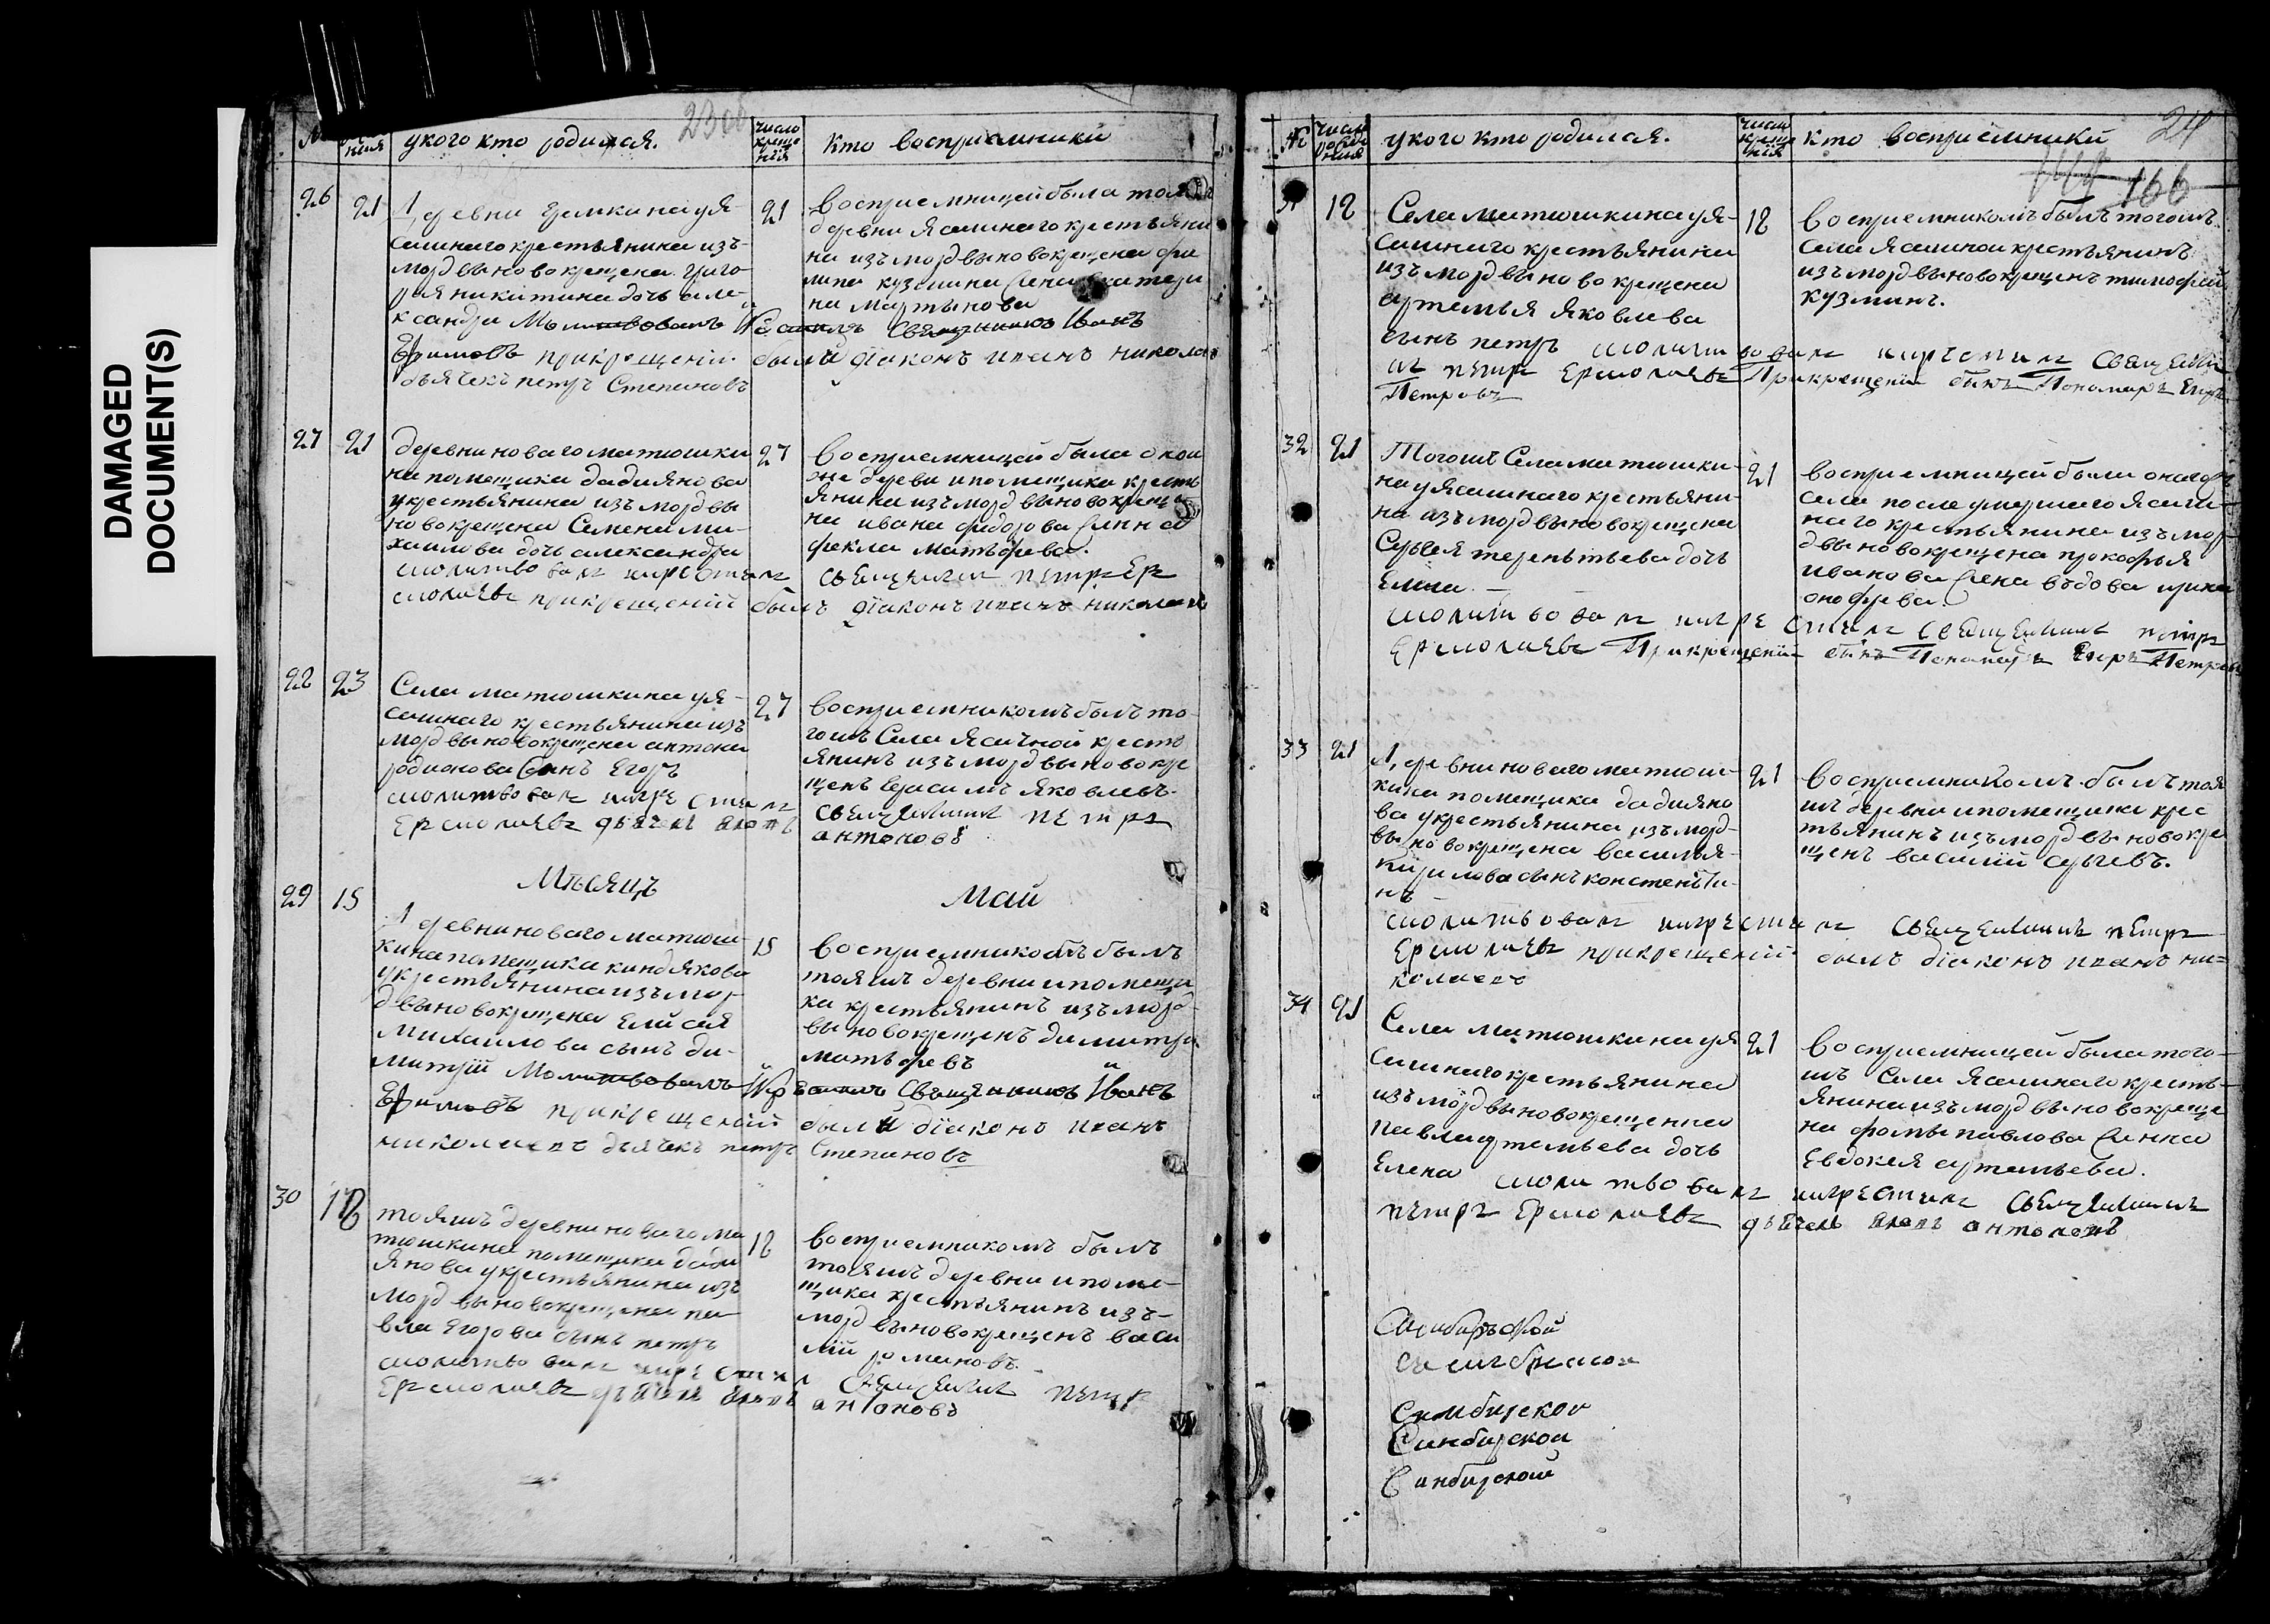 DAMAGED
DOCUMENT(S)
23 об
укого кто родился.
число креще нія
кто восприемники
26 21 Деревни еремкина уя-
сашнаго крестьянина изъ
мордвы новокрещена григо
рия никитина дочь але-
ксандра Молитвовалъ
Ефимовъ прикрещеніи
дьячекъ петръ Степановъ
21 восприемницей была тоя
деревни ясашнаго крестьяни
на изъ мордвы новокрещена фи
липа кузмина жена катери
на мартынова
И крестилъ Священникъ Иванъ
были діаконъ иванъ никола
27 21 деревни новаго матюшки
на помещика дадиянова
укрестьянина изъ мордвы
новокрещена Семена ми-
хаилова дочь александра
молитвовалъ икрестилъ
ермолаевъ прикрещеніи
27 восприемницей была оной
же дереви ипомещика кресть
янина изъ мордвы новокреще
на ивана федорова жена
фекла матьфева.
священникъ петръ Ер
былъ діаконъ иванъ николаевъ
28 23 Села матюшкина уя-
сашнаго крестьянина изъ
мордвы новокрещена антона
родионова сынъ Егоръ
молитвовалъ икрестилъ
Ермолаевъ дьячекъ яковъ
27 восприемникомъ былъ то-
гожъ Села ясачной кресть
янинъ изъ мордвы новокре
щенъ герасимъ яковлевъ.
священникъ петръ
антоновъ
Мѣсяцъ Май
29 15 Деревни новаго матюш-
кина помещика киндякова
укрестьянина изъ мор-
двы новокрещена Елисея
михаилова сынъ ди-
митрій Молитвовалъ
Ефимовъ прикрещеніи
николаевъ дьячекъ петръ
15 восприемникомъ былъ
тояжъ деревни ипомещи
ка крестьянинъ изъ морд-
вы новокрещенъ димитри
матьфевъ
И крестилъ Священникъ Иванъ
были діаконъ иванъ
Степановъ
30 18 тояжъ деревни новаго ма
тюшкина помещика дади
янова укрестьянина изъ
мордвы новокрещена па
вла Егорова сынъ петръ
молитвовалъ икрестил
Ермолаевъ дьячекъ яковъ
18 восприемникомъ былъ
тояжъ деревни ипоме-
щика крестьянинъ изъ-
мордвы новокрещенъ васи
лій романовъ.
священникъ петръ
антоновъ
№ число рожде ния
укого кто родился.
число креще нія
кто восприемники
24
166
31 18 Села матюшкина уя-
сашнаго крестьянина
изъ мордвы новокрещена
артемья яковлева
сынъ петръ молитвовалъ икрестилъ Священни
къ петръ Ермолаевъ Прикрещеніи былъ Пономарь Егоръ
Петровъ
18 восприемникомъ былъ тогожъ
села ясашной крестьянинъ
изъ мордвы новокрещенъ тимофей
кузминъ.
32 21 Тогожъ Села матюшки-
на уясашнаго крестьяни-
на изъ мордвы новокрещена
Сергея терентьева дочь
Елена
молитвовалъ икрестилъ священникъ петръ
Ермолаевъ Прикрещеніи былъ Пономарь Егоръ Петровъ
21 восприемницей была онагожъ
села после умершаго ясаш-
наго крестьянина изъ мор-
двы новокрещена прокофья
иванова жена вьдова ирина
онофрева.
33 21 Деревни новаго матюш-
кина помещика дадияно
ва укрестьянина изъ морд-
вы новокрещена василья-
кирилова сынъ констенти-
нъ
молитвовалъ икрестилъ священникъ петръ
Ермолаевъ прикрещеніи былъ діаконъ иванъ ни=
колаевъ
21 восприемникомъ былъ тоя
жъ деревни ипомещика крес
тьянинъ изъ мордвы новокре
щенъ василій сергеевъ.
34 21 Села матюшкина уя
сашнаго крестьянина
изъ мордвы новокрещенна
павла артемьева дочь
Елена молитвовалъ икрестилъ Священникъ
петръ Ермолаевъ дьячекъ яковъ антоновъ
21 восприемницей была того-
жъ Села ясашнаго кресть-
янина изъ мордвы новокреще
на фомы павлова жена
Евдокея артемьева.
Симбирской
Симбирскои
Синбирскои
Синбирской